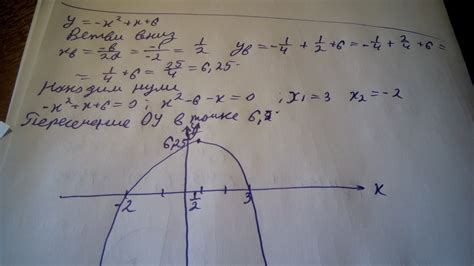 y = -x² + x + 6
Ветви вниз
xв = -b/2a = -1/-2 = 1/2 yв = -1/4 + 1/2 + 6 = -1/4 + 2/4 + 6 =
= 1/4 + 6 = 25/4 = 6,25.
Находим нули
-x² + x + 6 = 0; x² - 6 - x = 0 ; x₁ = 3 x₂ = -2
Пересечение ОУ в точке 6,
y
6,25
-2 1/2 3 x